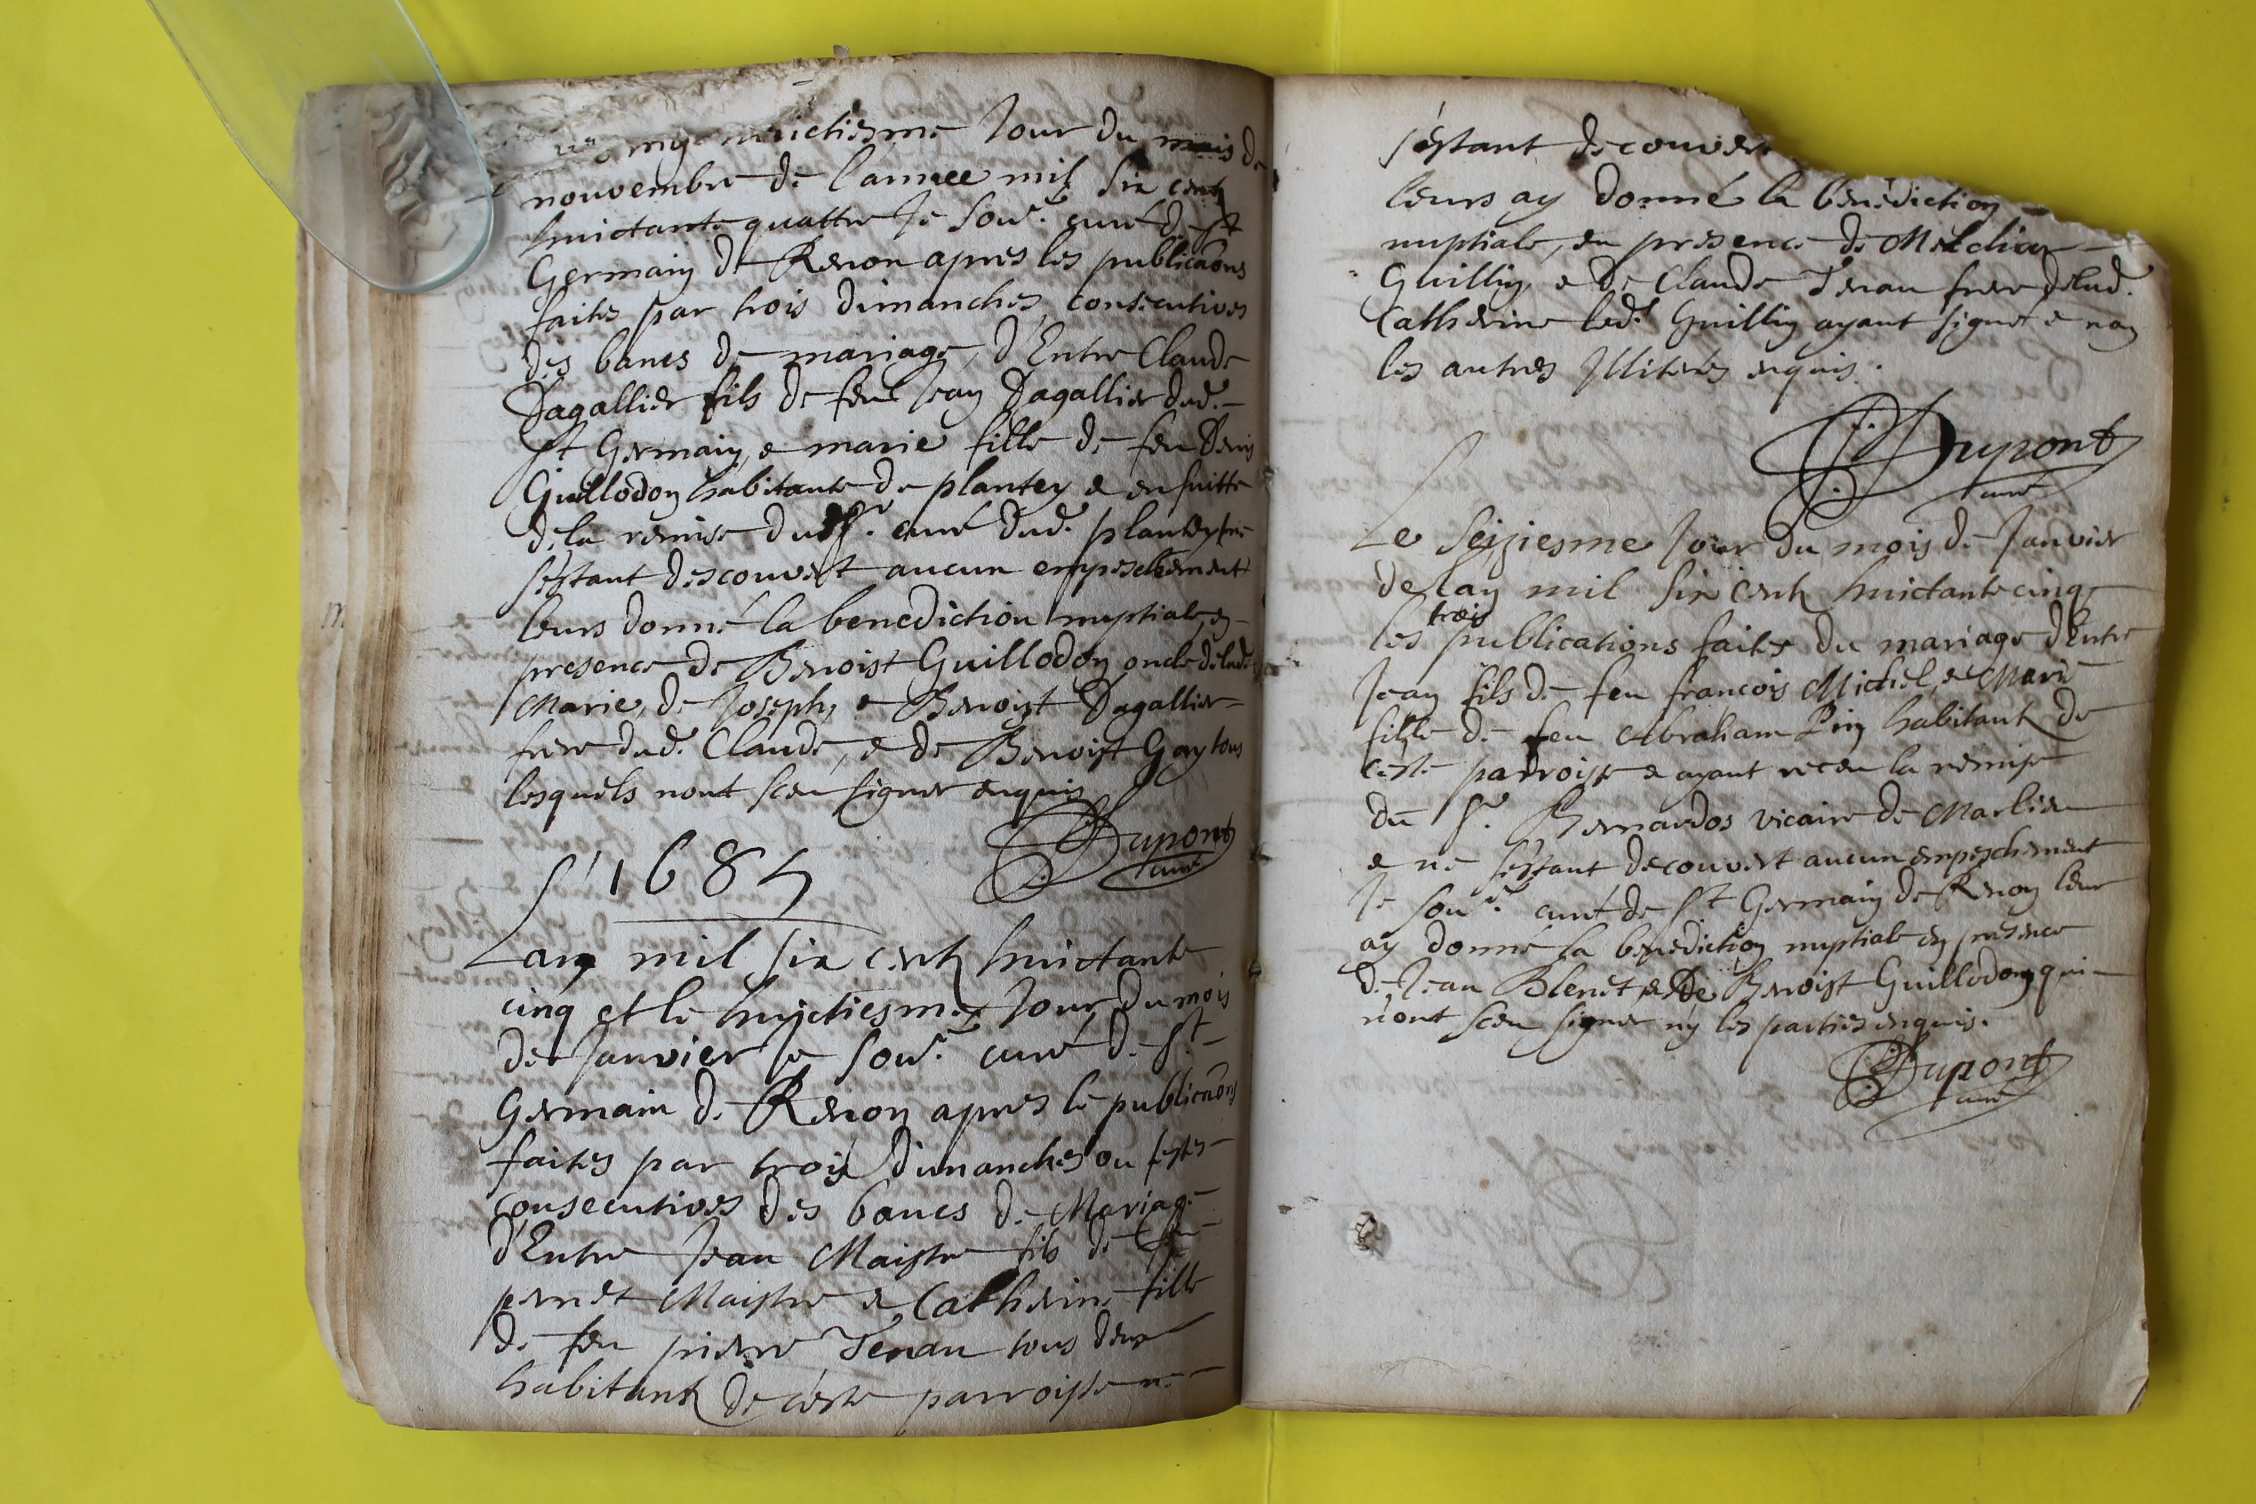 huictiesme Jour du mois de
nouvembre de l'annee mil six cents
huictante quattre Je sousr. curé de St
Germain de Renon apres les publicãons
faites par trois dimanches consecutives
des bancs de mariage, d'Entre Claude
Dagallier fils de feu Jean Dagallier dud.
St Germain, e marie fille de feu Denis
Guillodon habitante de plantey e ensuitte
de la remise dud Sr. curé dud. plantey ne
s'estant descouvert aucun empeschement
leurs donné la benediction nuptiale, en
presence de Benoist Guillodon oncle de lad.
Marie, de Joseph, e Benoist Dagallier
frere dud. Claude, e de Benoist Gay tous
lesquels n'ont sceu signer enquis
Dupont
curé
1685
L'an mil six cents huictante
cinq et le huictiesme Jour du mois
de Janvier Je sousr. curé de St
Germain de Renon apres le publicãons
faites par trois dimanches ou festes
consecutives des bancs de Mariage
d'Entre Jean Maistre fils de feu
pernet Maistre e Catherine fille
de feu pierre Tenan tous deux
habitants de ceste parroisse ne
s'estant decouver
leurs ay donné la benediction
nuptiale, en presence de Melchior
Guillin, e de Claude Tenan frere de lad.
Catherine led. Guillin ayant signé e non
les autres Illiterés enquis.
Dupont
curé
Le Seiziesme Jour du mois de Janvier
de l'an mil six cents huictante cinq
les trois publications faites du mariage d'Entre
Jean fils de feu françois Michel, e Marie
fille de feu Abraham Pin habitants de
ceste parroisse e ayant receu la remise
du Sr. Bernardos vicaire de Marlieu
e ne s'estant decouvert aucun empeschement
Je sousr. curé de St Germain de Renon leur
ay donné la benediction nuptiale en presence
de Jean Blenet e De Benoist Guillodon qui
n'ont sceu signer n'y les parties enquis.
Dupont
curé